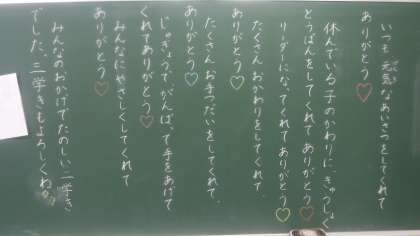 いつも元気なあいさつをしてくれて
ありがとう♡
休んでいる子のかわりに、きゅうしょく
とうばんをしてくれてありがとう♡
リーダーになってくれてありがとう♡
たくさんおかわりをしてくれて、
ありがとう♡
たくさんお手つだいをしてくれて、
ありがとう♡
じゅぎょうで、がんばって手をあげて
くれてありがとう♡
みんなにやさしくしてくれて
ありがとう♡
みんなのおかげでたのしい二学き
でした。三学きもよろしくね。